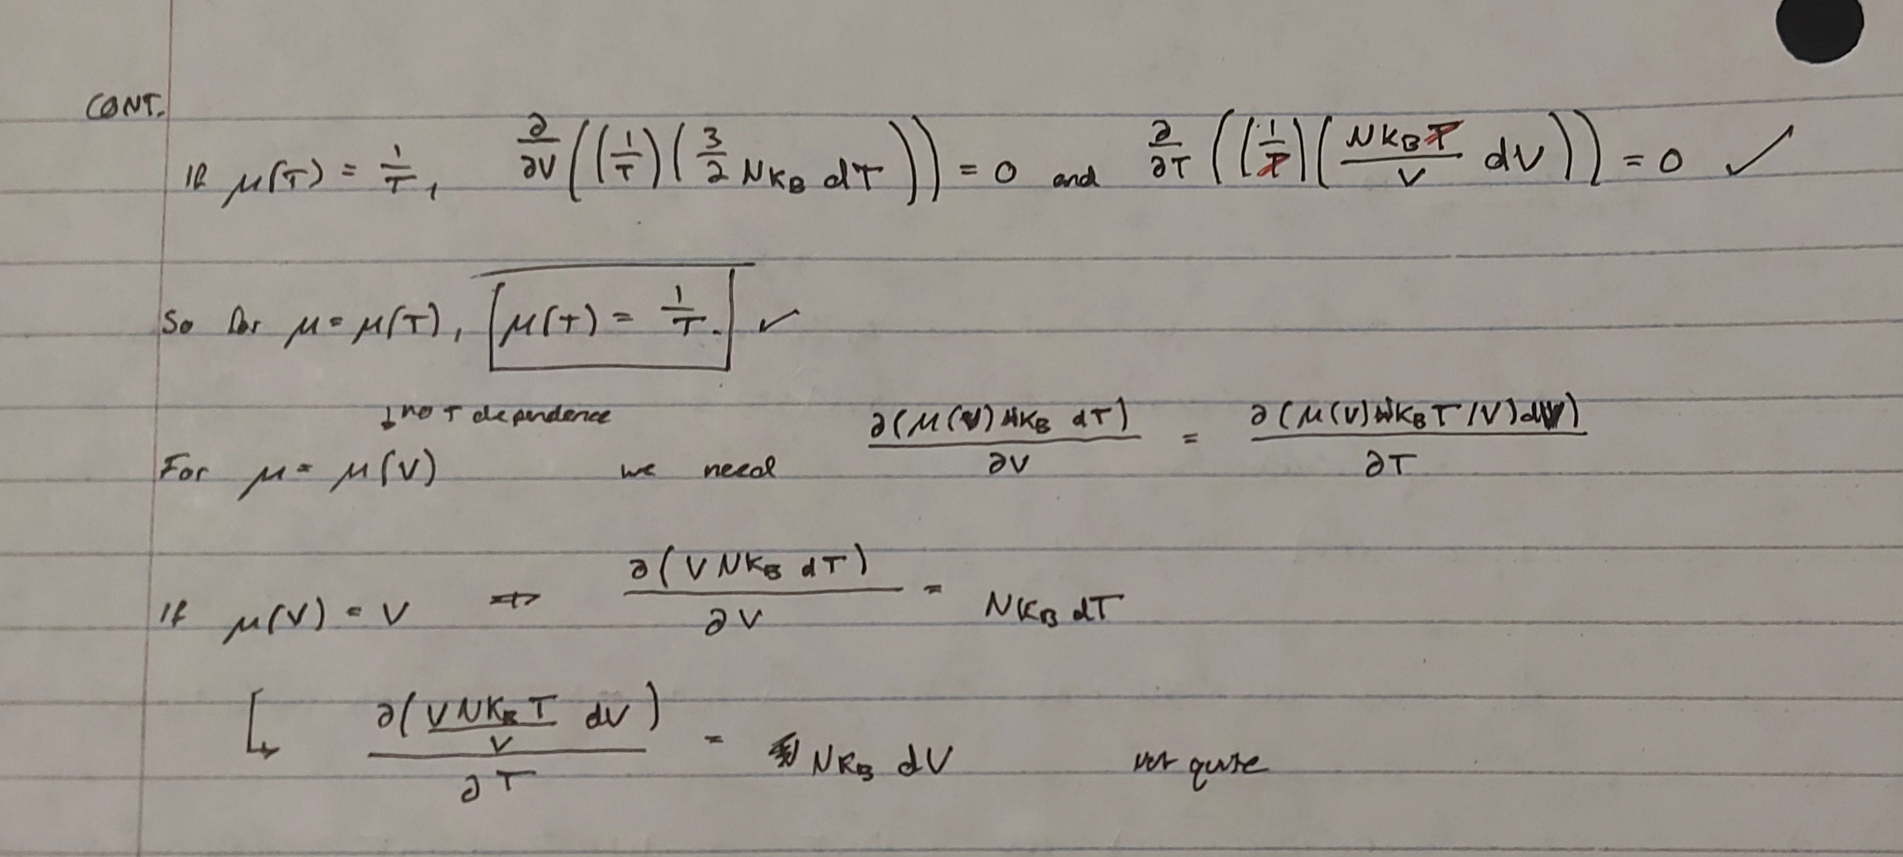 CONT.
If μ(T) = 1/T, ∂/∂V ((1/T)(3/2 NK_B dT)) = 0 and ∂/∂T ((1/T)(NK_BT/V dV)) = 0 ✓
So for μ = μ(T), μ(T) = 1/T. ✓
↓ no T dependence
For μ = μ(V) we need ∂(μ(V) NK_B dT)/∂V = ∂(μ(V) NK_B T/V) dV)/∂T
If μ(V) = V ⇒ ∂(V NK_B dT)/∂V = NK_B dT
↳ ∂(V NK_B T/V dV)/∂T = NK_B dV not quite